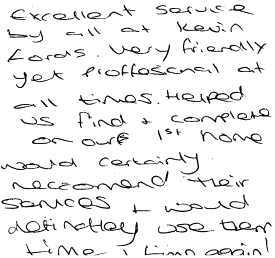 Excellent service
by all at Kevin
Fords. Very friendly
yet proffesonal at
all times. Helped
us find & complete
on our 1st home
would certainly
reccomend their
services & would
definatley use them
time & time again!